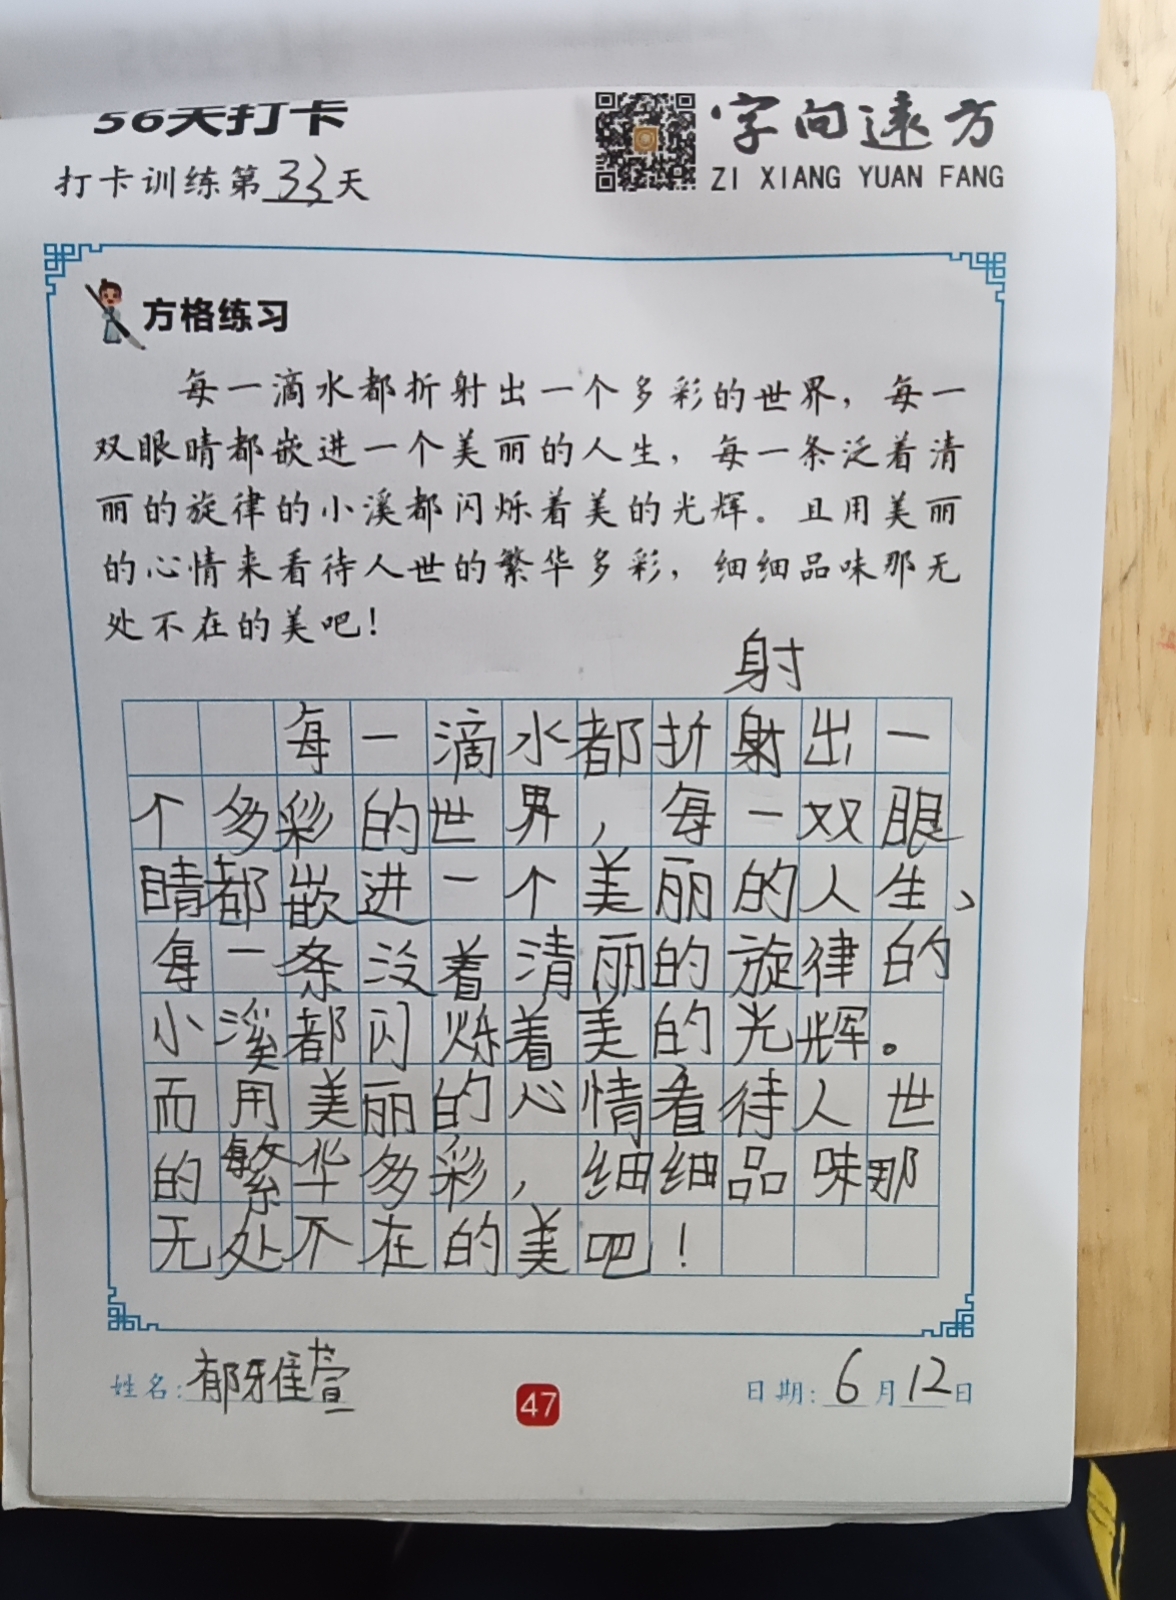 56天打卡
字向远方
打卡训练第33天
ZI XIANG YUAN FANG
方格练习
每一滴水都折射出一个多彩的世界，每一
双眼睛都嵌进一个美丽的人生，每一条泛着清
丽的旋律的小溪都闪烁着美的光辉。且用美丽
的心情来看待人世的繁华多彩，细细品味那无
处不在的美吧！
射
每一滴水都折射出一
个多彩的世界，每一双眼
睛都嵌进一个美丽的人生、
每一条没着清丽的旋律的
小溪都闪烁着美的光辉。
而用美丽的心情看待人世
的繁华多彩，细细品味那
无处不在的美吧！
姓名：郁雅萱
47
日期：6月12日